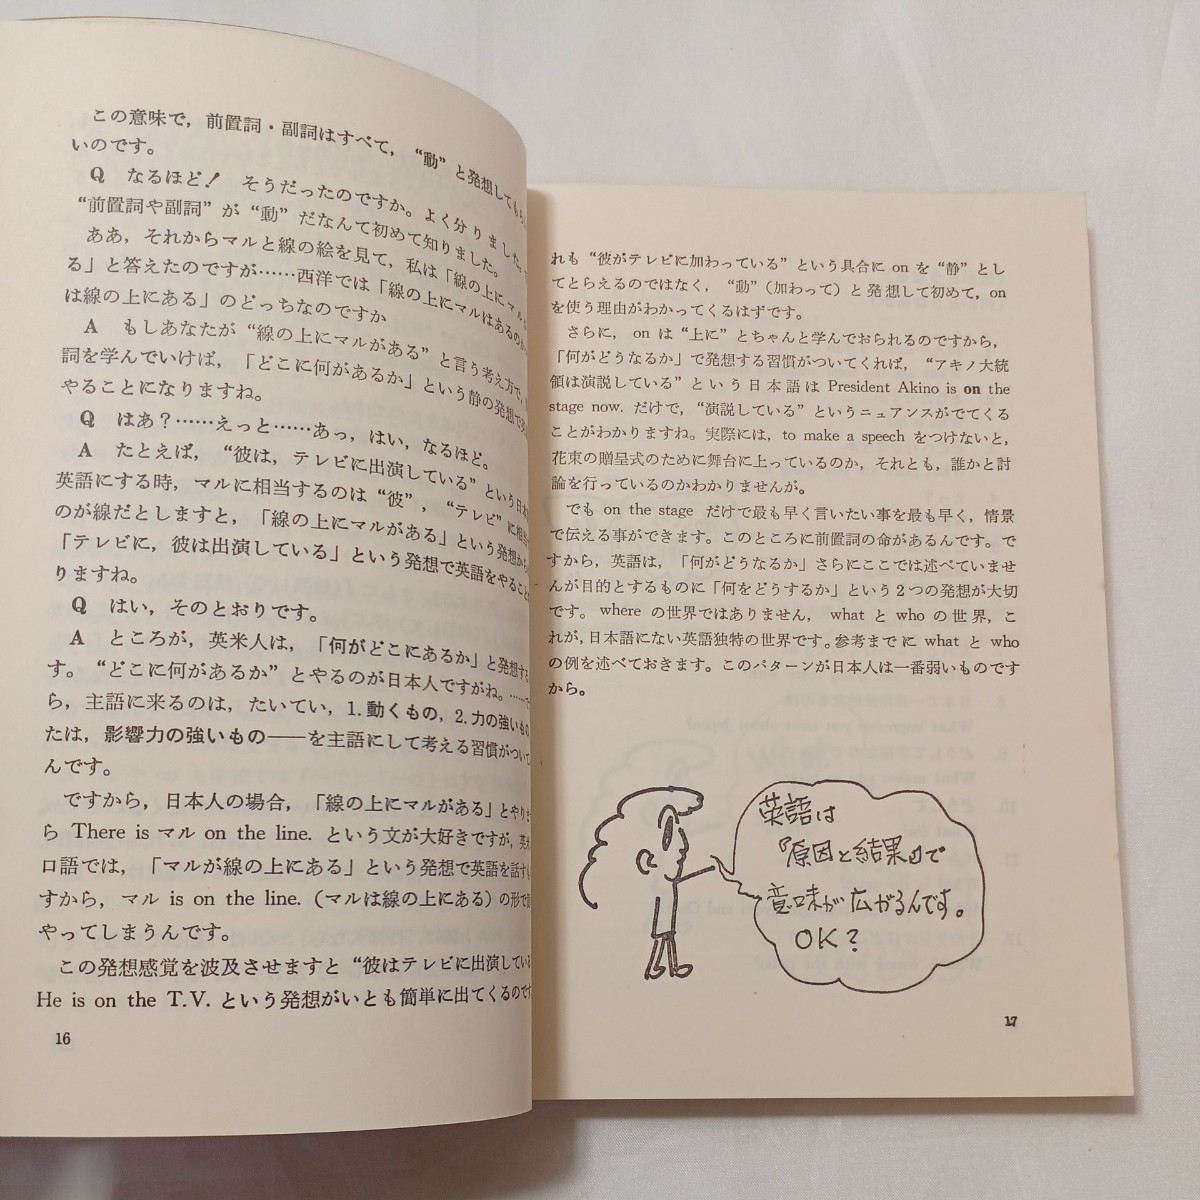 この意味で，前置詞・副詞はすべて，“動”と発想してもら
いのです。
Q なるほど！ そうだったのですか。よく分りました。
“前置詞や副詞”が“動”だなんて初めて知りました。
ああ，それからマルと線の絵を見て，私は「線の上にマル
る」と答えたのですが……西洋では「線の上にマルはあるのか
は線の上にある」のどっちなのですか
A もしあなたが“線の上にマルがある”と言う考え方で，
詞を学んでいけば，「どこに何があるか」という静の発想で
やることになりますね。
Q はあ？……えっと……あっ，はい，なるほど。
A たとえば，“彼は，テレビに出演している”という日本
英語にする時，マルに相当するのは“彼”，“テレビ”に相当
のが線だとしますと，「線の上にマルがある」という発想から
「テレビに，彼は出演している」という発想で英語をやること
りますね。
Q はい，そのとおりです。
A ところが，英米人は，「何がどこにあるか」と発想す
す。“どこに何があるか”とやるのが日本人ですがね。……で
ら，主語に来るのは，たいてい，1.動くもの，2.力の強いもの
たは，影響力の強いもの――を主語にして考える習慣がついて
んです。
ですから，日本人の場合，「線の上にマルがある」とや
ら There is マル on the line. という文が大好きですが，英
ロ語では，「マルが線の上にある」という発想で英語を話す
すから，マル is on the line.（マルは線の上にある）の形で
やってしまうんです。
この発想感覚を波及させますと“彼はテレビに出演している
He is on the T.V. という発想がいとも簡単に出てくるのです
16
れも“彼がテレビに加わっている”という具合に on を“静”とし
てとらえるのではなく，“動”（加わって）と発想して初めて，on
を使う理由がわかってくるはずです。
さらに，on は“上に”とちゃんと学んでおられるのですから，
「何がどうなるか」で発想する習慣がついてくれば，“アキノ大統
領は演説している”という日本語は President Akino is on the
stage now. だけで，“演説している”というニュアンスがでてくる
ことがわかりますね。実際には，to make a speech をつけないと，
花束の贈呈式のために舞台に上っているのか，それとも，誰かと討
論を行っているのかわかりませんが。
でも on the stage だけで最も早く言いたい事を最も早く，情景
で伝える事ができます。このところに前置詞の命があるんです。で
すから，英語は，「何がどうなるか」さらにここでは述べていませ
んが目的とするものに「何をどうするか」という2つの発想が大切
です。where の世界ではありません，what と who の世界，こ
れが，日本語にない英語独特の世界です。参考までに what と who
の例を述べておきます。このパターンが日本人は一番弱いものです
から。
英語は
『原因と結果』で
意味が広がるんです。
OK？
17